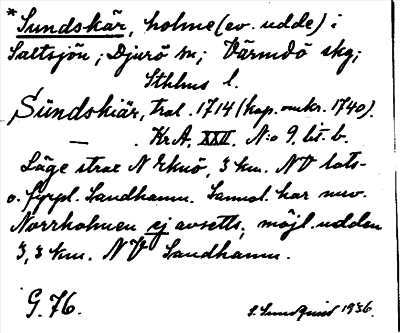 *Sundskär, holme (ev. udde) i
Saltsjön; Djurö sn; Värmdö skg;
Sthlms l.
Sündskiär, tral. 1714 (kop. omkr. 1740).
— . Kr A, XXII. N:o 9. lit. b.
Läge strax N Eknö, 3 km. NV lots-
o. fyrpl. Sandhamn. Sannol. har nuv.
Norrholmen ej avsetts, möjl. udden
3,3 km. NV Sandhamn.
G. 76.
S. Sundquist 1936.